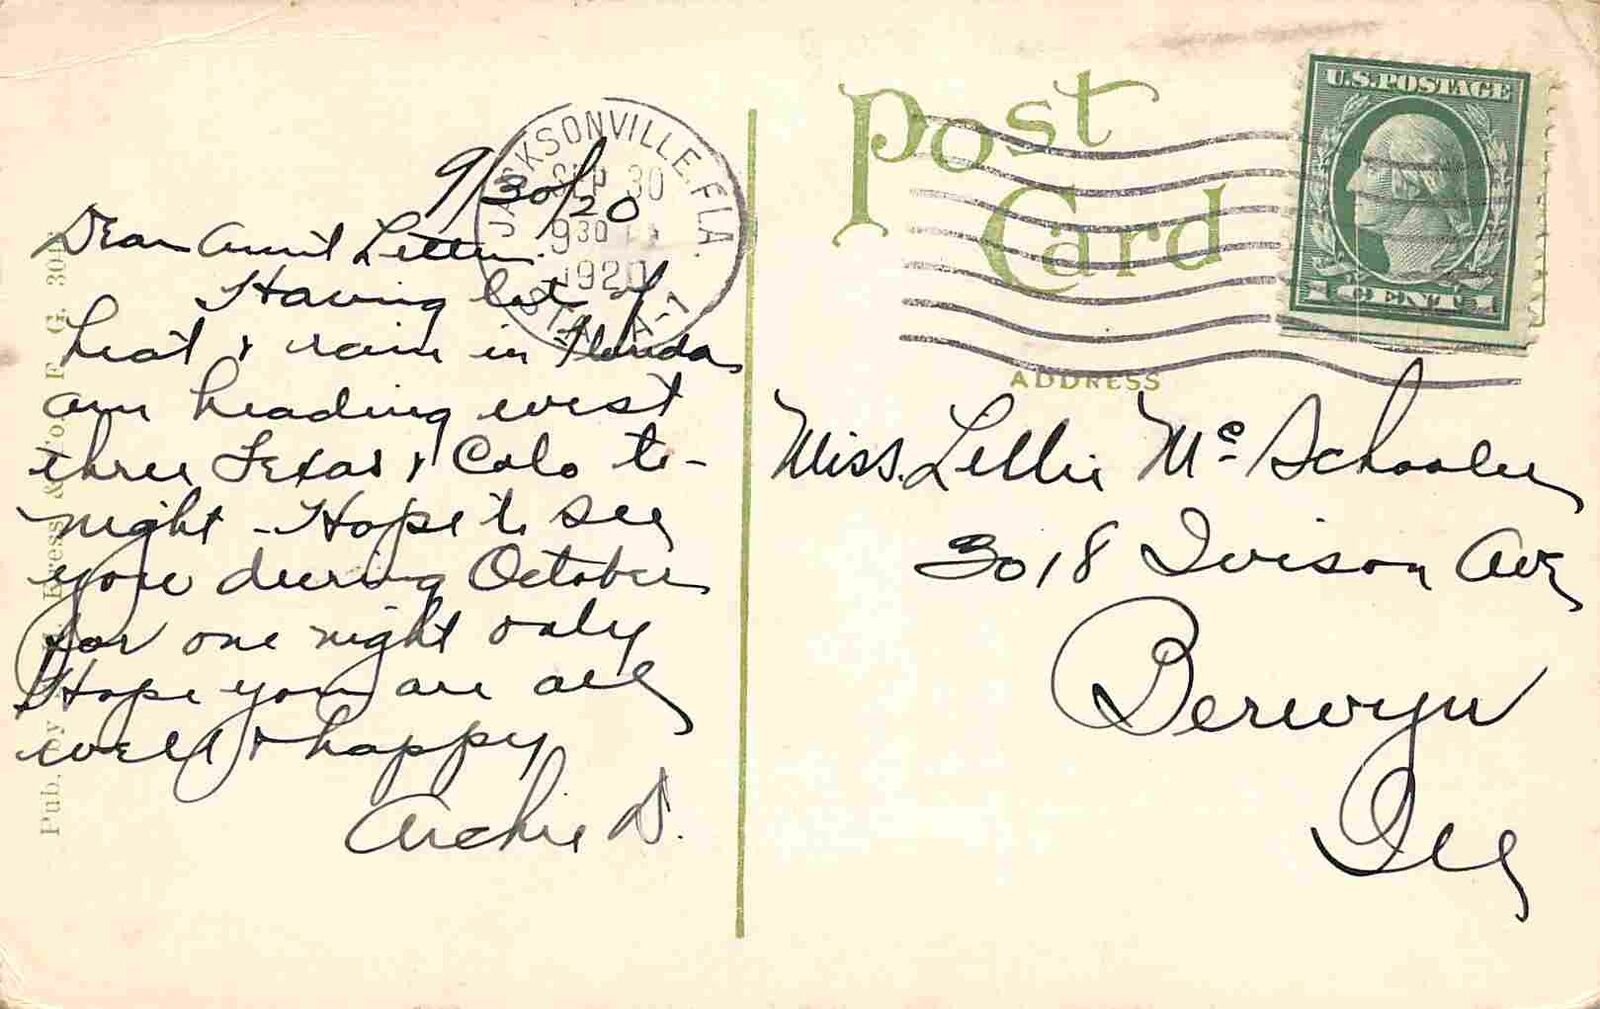 9/30/20
Dear Aunt Lettie.
Having lot of
heat & rain in Florida
am heading west
three Texas & Colo to-
night - Hope to see
you during October
for one night only
Hope you are all
well & happy
Archie D.
Pub. by Kress & Co. F. G. 301
JACKSONVILLE, FLA.
SEP 30
930
1920
STA. A-1
Post
Card
U.S. POSTAGE
1 CENT 1
ADDRESS
Miss. Lellie Mc Schooler
3018 Ivison Ave
Berwyn
Ill